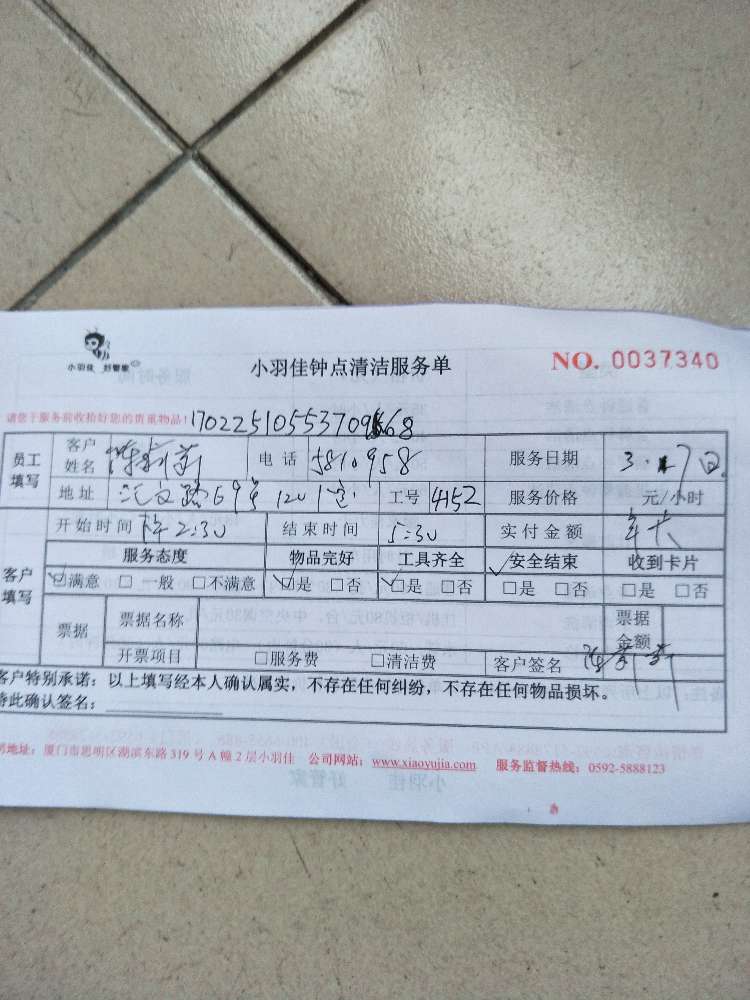 小羽佳 好管家
小羽佳钟点清洁服务单
NO. 0037340
请您于服务前收拾好您的贵重物品!
员工填写 客户姓名 陈 电话 5810958 服务日期 3. 7日
地址 汇文路69号1201室 工号 4152 服务价格 元/小时
开始时间 下午2:30 结束时间 5:30 实付金额 年卡
客户填写 服务态度 物品完好 工具齐全 安全结束 收到卡片
☑满意 □一般 □不满意 ☑是 □否 ☑是 □否 □是 □否 □是 □否
票据 票据名称 票据金额
开票项目 □服务费 □清洁费 客户签名
客户特别承诺：以上填写经本人确认属实，不存在任何纠纷，不存在任何物品损坏。
特此确认签名：
地址：厦门市思明区湖滨东路319号A幢2层小羽佳 公司网站：www.xiaoyujia.com 服务监督热线：0592-5888123